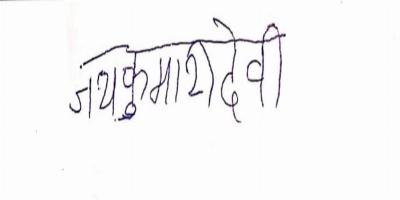 जयकुमारीदेवी